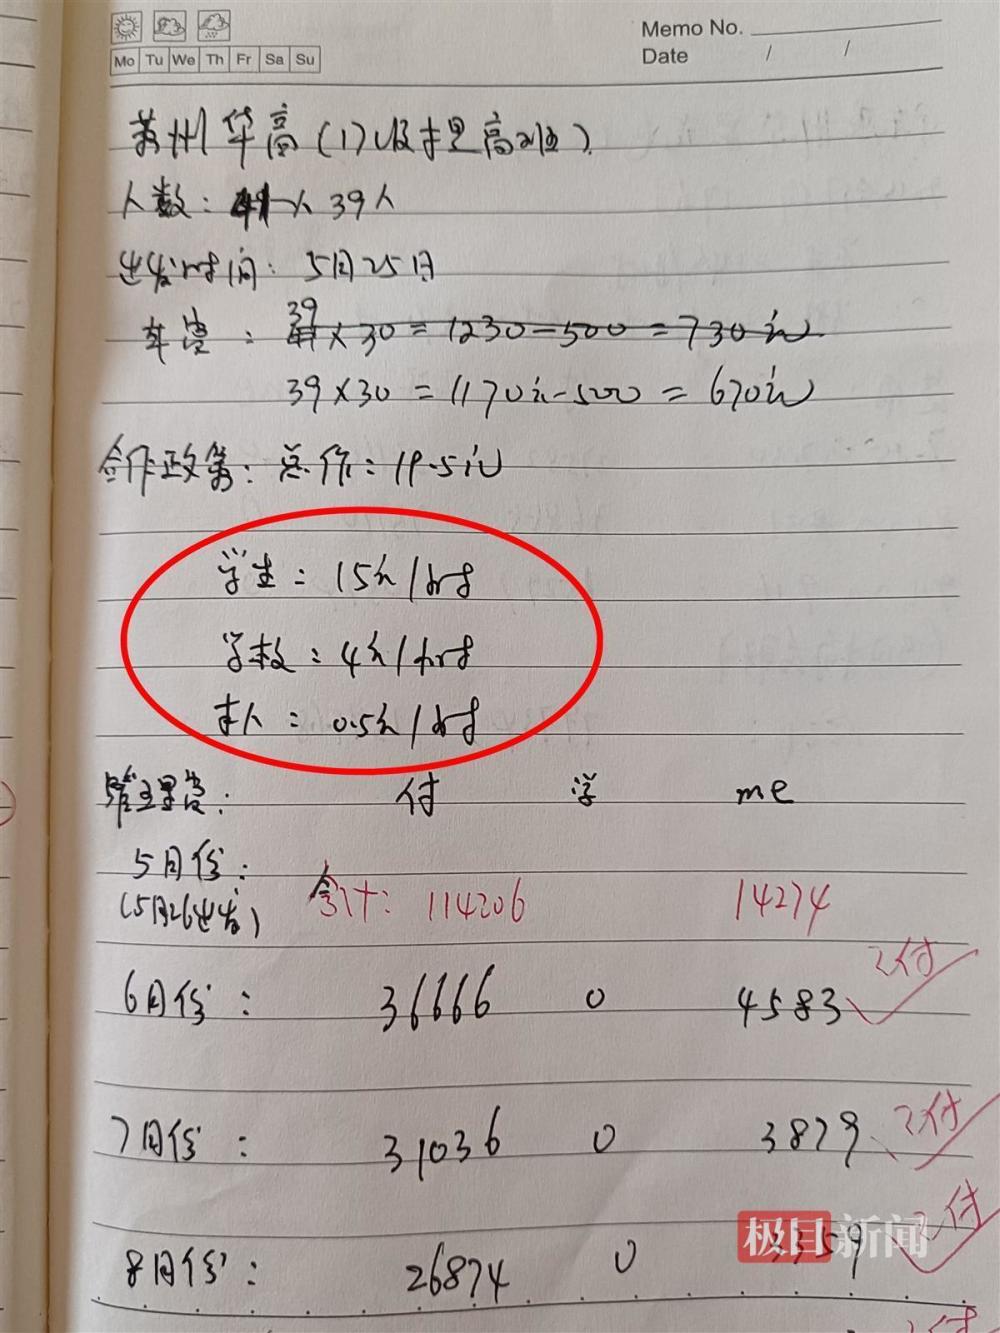 Memo No.
Mo Tu We Th Fr Sa Su
Date / /
苏州华高(1)
人数: 39人
出发时间: 5月25日
车费: 39×30=1230-500=730元
39×30=1170元-500=670元
合作政策: 总价: 19.5元
学生: 15元/小时
学校: 4元/小时
本人: 0.5元/小时
管理费: 付 学 me
5月份:
(5月26出发) 合计: 114206 14274
6月份: 36666 0 4583 已付
7月份: 31036 0 3879 已付
8月份: 26874 0 3359 已付
极目新闻